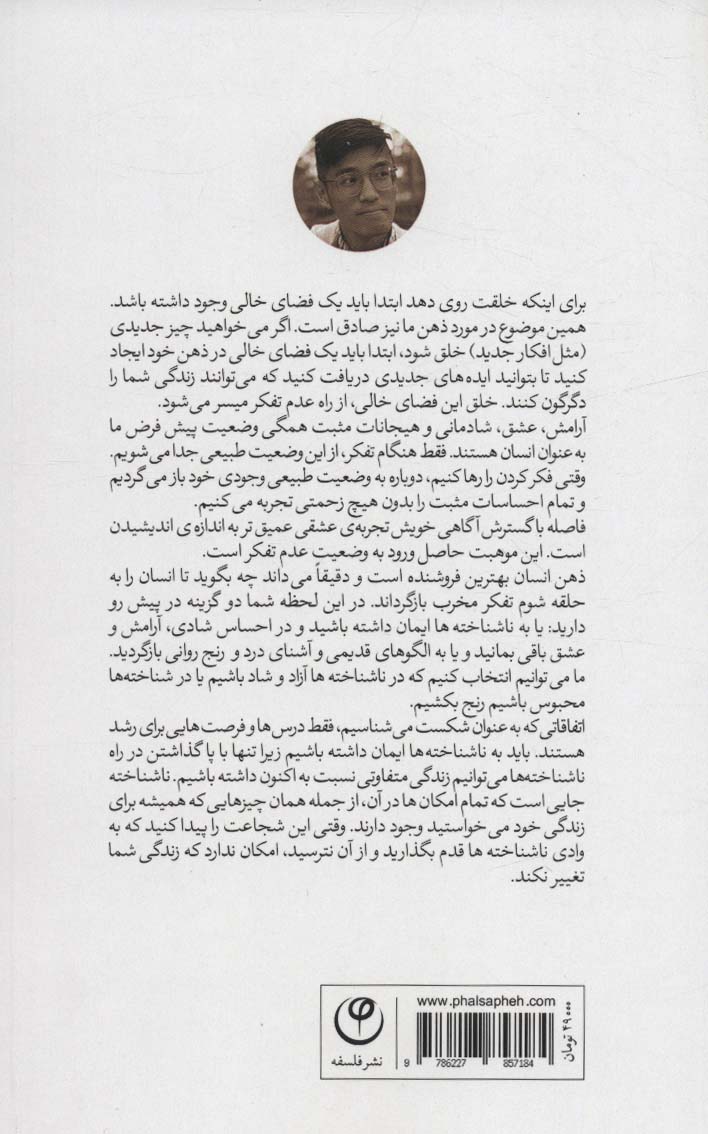 برای اینکه خلقت روی دهد ابتدا باید یک فضای خالی وجود داشته باشد.
همین موضوع در مورد ذهن ما نیز صادق است. اگر می خواهید چیز جدیدی
(مثل افکار جدید) خلق شود، ابتدا باید یک فضای خالی در ذهن خود ایجاد
کنید تا بتوانید ایده های جدیدی دریافت کنید که می توانند زندگی شما را
دگرگون کنند. خلق این فضای خالی، از راه عدم تفکر میسر می شود.
آرامش، عشق، شادمانی و هیجانات مثبت همگی وضعیت پیش فرض ما
به عنوان انسان هستند. فقط هنگام تفکر، از این وضعیت طبیعی جدا می شویم.
وقتی فکر کردن را رها کنیم، دوباره به وضعیت طبیعی وجودی خود باز می گردیم
و تمام احساسات مثبت را بدون هیچ زحمتی تجربه می کنیم.
فاصله با گسترش آگاهی خویش تجربه‌ی عشقی عمیق تر به اندازه ی اندیشیدن
است. این موهبت حاصل ورود به وضعیت عدم تفکر است.
ذهن انسان بهترین فروشنده است و دقیقاً می داند چه بگوید تا انسان را به
حلقه شوم تفکر مخرب بازگرداند. در این لحظه شما دو گزینه در پیش رو
دارید: یا به ناشناخته ها ایمان داشته باشید و در احساس شادی، آرامش و
عشق باقی بمانید و یا به الگوهای قدیمی و آشنای درد و رنج روانی بازگردید.
ما می توانیم انتخاب کنیم که در ناشناخته ها آزاد و شاد باشیم یا در شناخته‌ها
محبوس باشیم رنج بکشیم.
اتفاقاتی که به عنوان شکست می شناسیم، فقط درس ها و فرصت هایی برای رشد
هستند. باید به ناشناخته‌ها ایمان داشته باشیم زیرا تنها با پا گذاشتن در راه
ناشناخته‌ها می توانیم زندگی متفاوتی نسبت به اکنون داشته باشیم. ناشناخته
جایی است که تمام امکان ها در آن، از جمله همان چیزهایی که همیشه برای
زندگی خود می خواستید وجود دارند. وقتی این شجاعت را پیدا کنید که به
وادی ناشناخته ها قدم بگذارید و از آن نترسید، امکان ندارد که زندگی شما
تغییر نکند.
www.phalsapheh.com
۴۹۰۰۰ تومان
9 786227 857184
نشر فلسفه